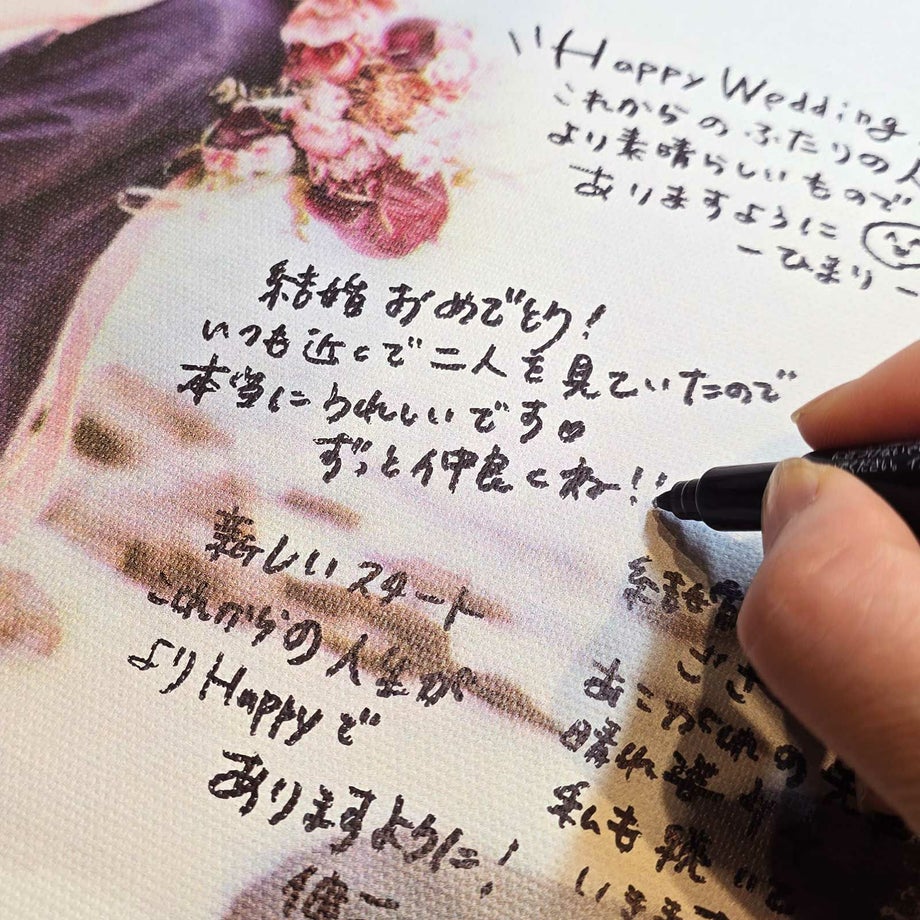 Happy Wedding
これからのふたりの人
より素晴らしいもので
ありますように
ーひまりー
結婚おめでとう!
いつも近くで二人を見ていたので
本当にうれしいです♡
ずっと仲良くね!!
新しいスタート
これからの人生が
よりHappyで
ありますように!
健一
結婚
ござ
あこがれの先
晴れ姿
私も続いて
いきま